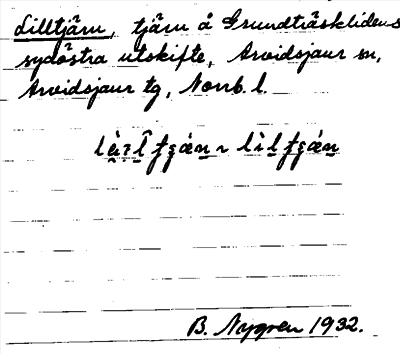 Lilltjärn, tjärn å Grundträsklidens
sydöstra utskifte, Arvidsjaur sn,
Arvidsjaur tg, Norrb. l.
B. Nygren 1932.